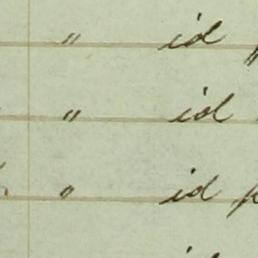 " id "
" id
" id